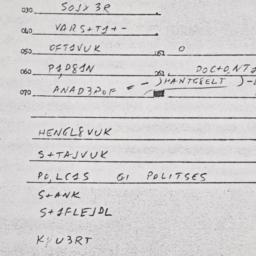 030 SOJX 3R
040 VARS+T1+-
050 OFTAVUK 0
060 P1D81N DOC+O,NT1
070 ANAD3POF = - )HANTGEELT )-
HENGL8VUK
S+TAJVUK
PO,LC1S GI POLITSES
S+ANK
S+1FLEJDL
K U3RT